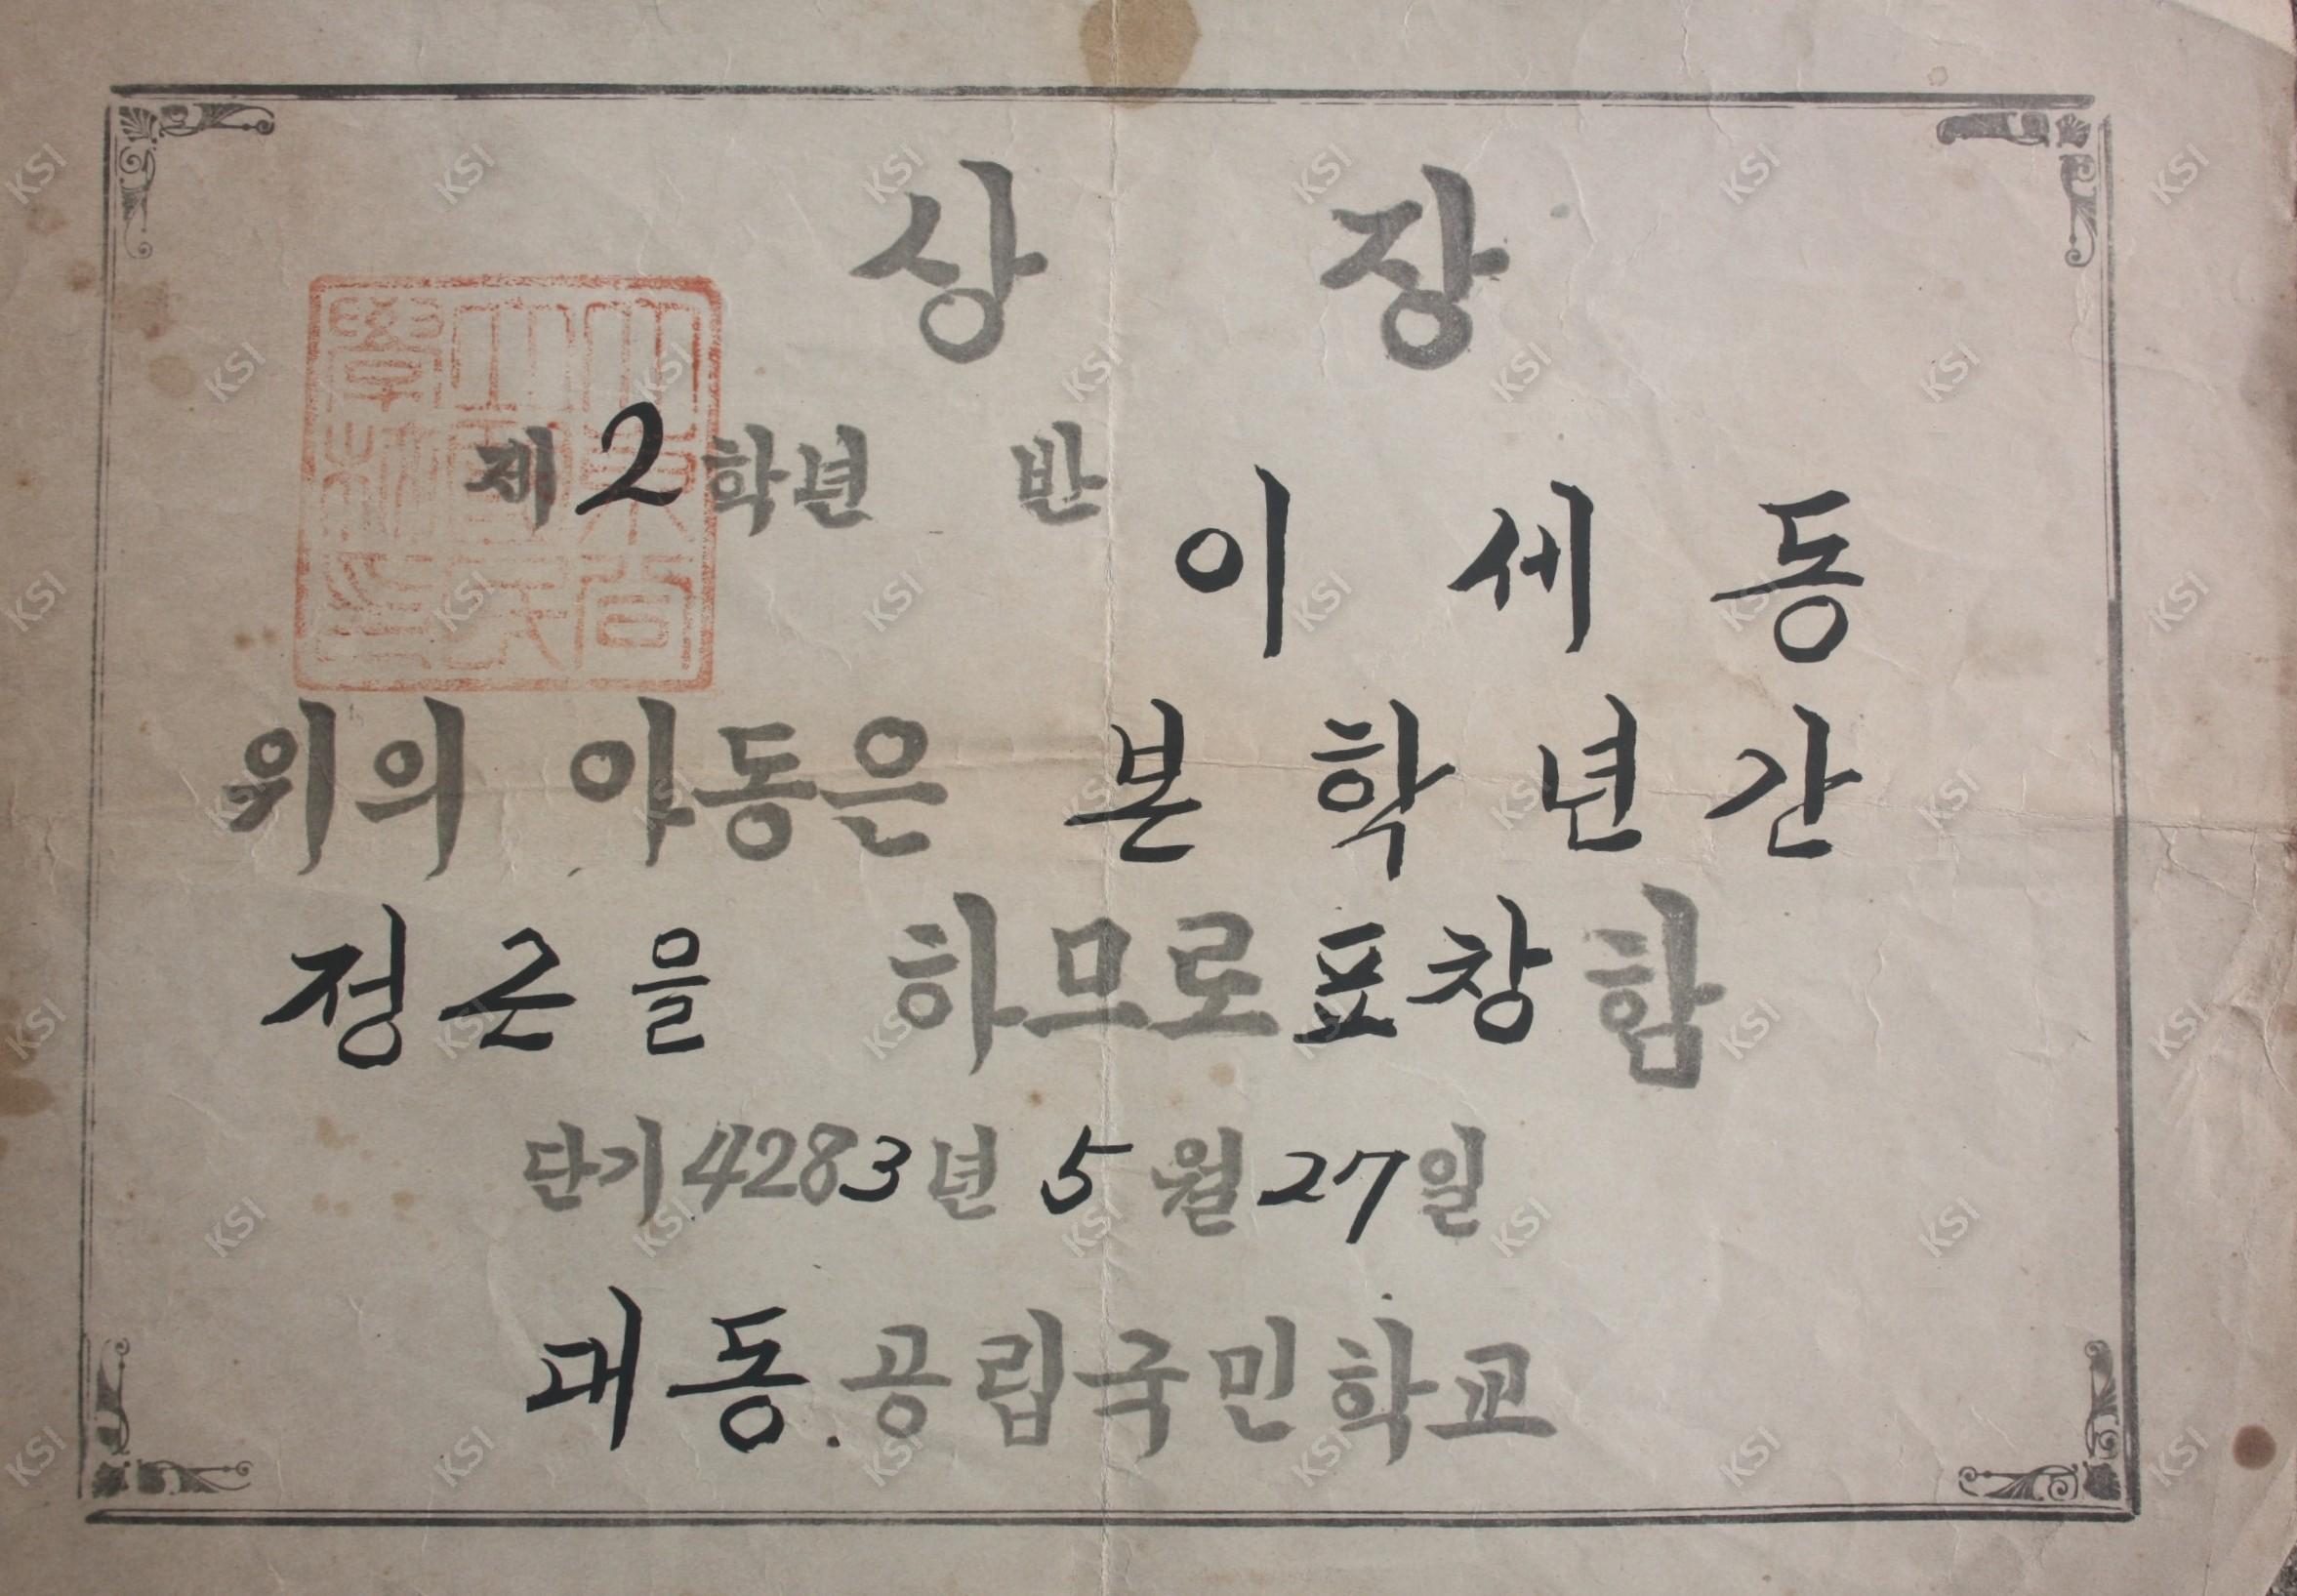 상 장
제2학년 반
이 세 동
위의 아동은 본 학 년 간
정 근 을 하므로 표창 함
단기 4283년 5월 27일
대 동 공립국민학교